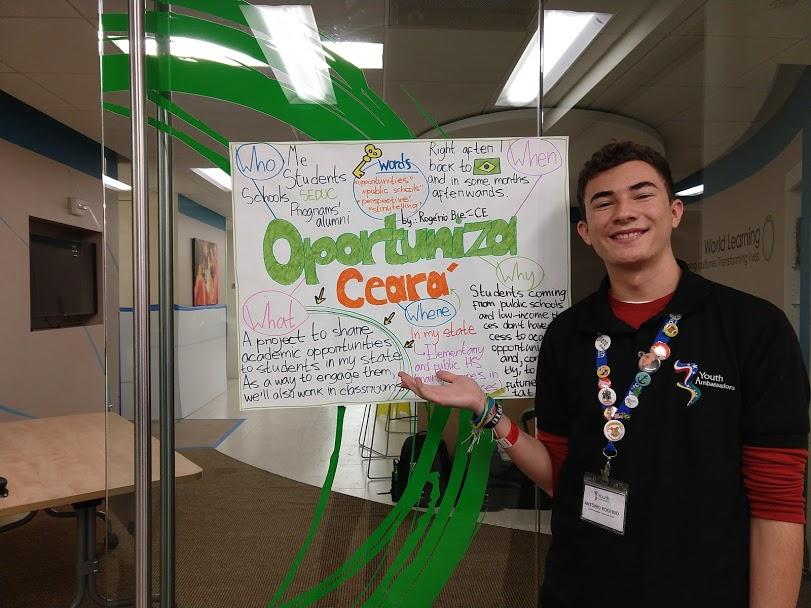 Who
Me
Students
Schools, SEDUC,
Programs'
alumni
words
"opportunities"
"public schools"
"perspective"
"storytelling"
Right after I
back to
and in some months
afterwards.
When
by: Rogério Bie - CE
Oportuniza
Ceará
What
A project to share
academic opportunities
to students in my state.
As a way to engage them,
we'll also work in classrooms
Where
In my state
Elementary
and public HS
in
Why
Students coming
from public schools
and low-income
don't have
cess to
opportuni
and, con
tly, to
future
World Learning
cultures. Transforming lives.
Youth
Ambassadors
Youth
Ambassadors
ANTÔNIO ROGÉRIO